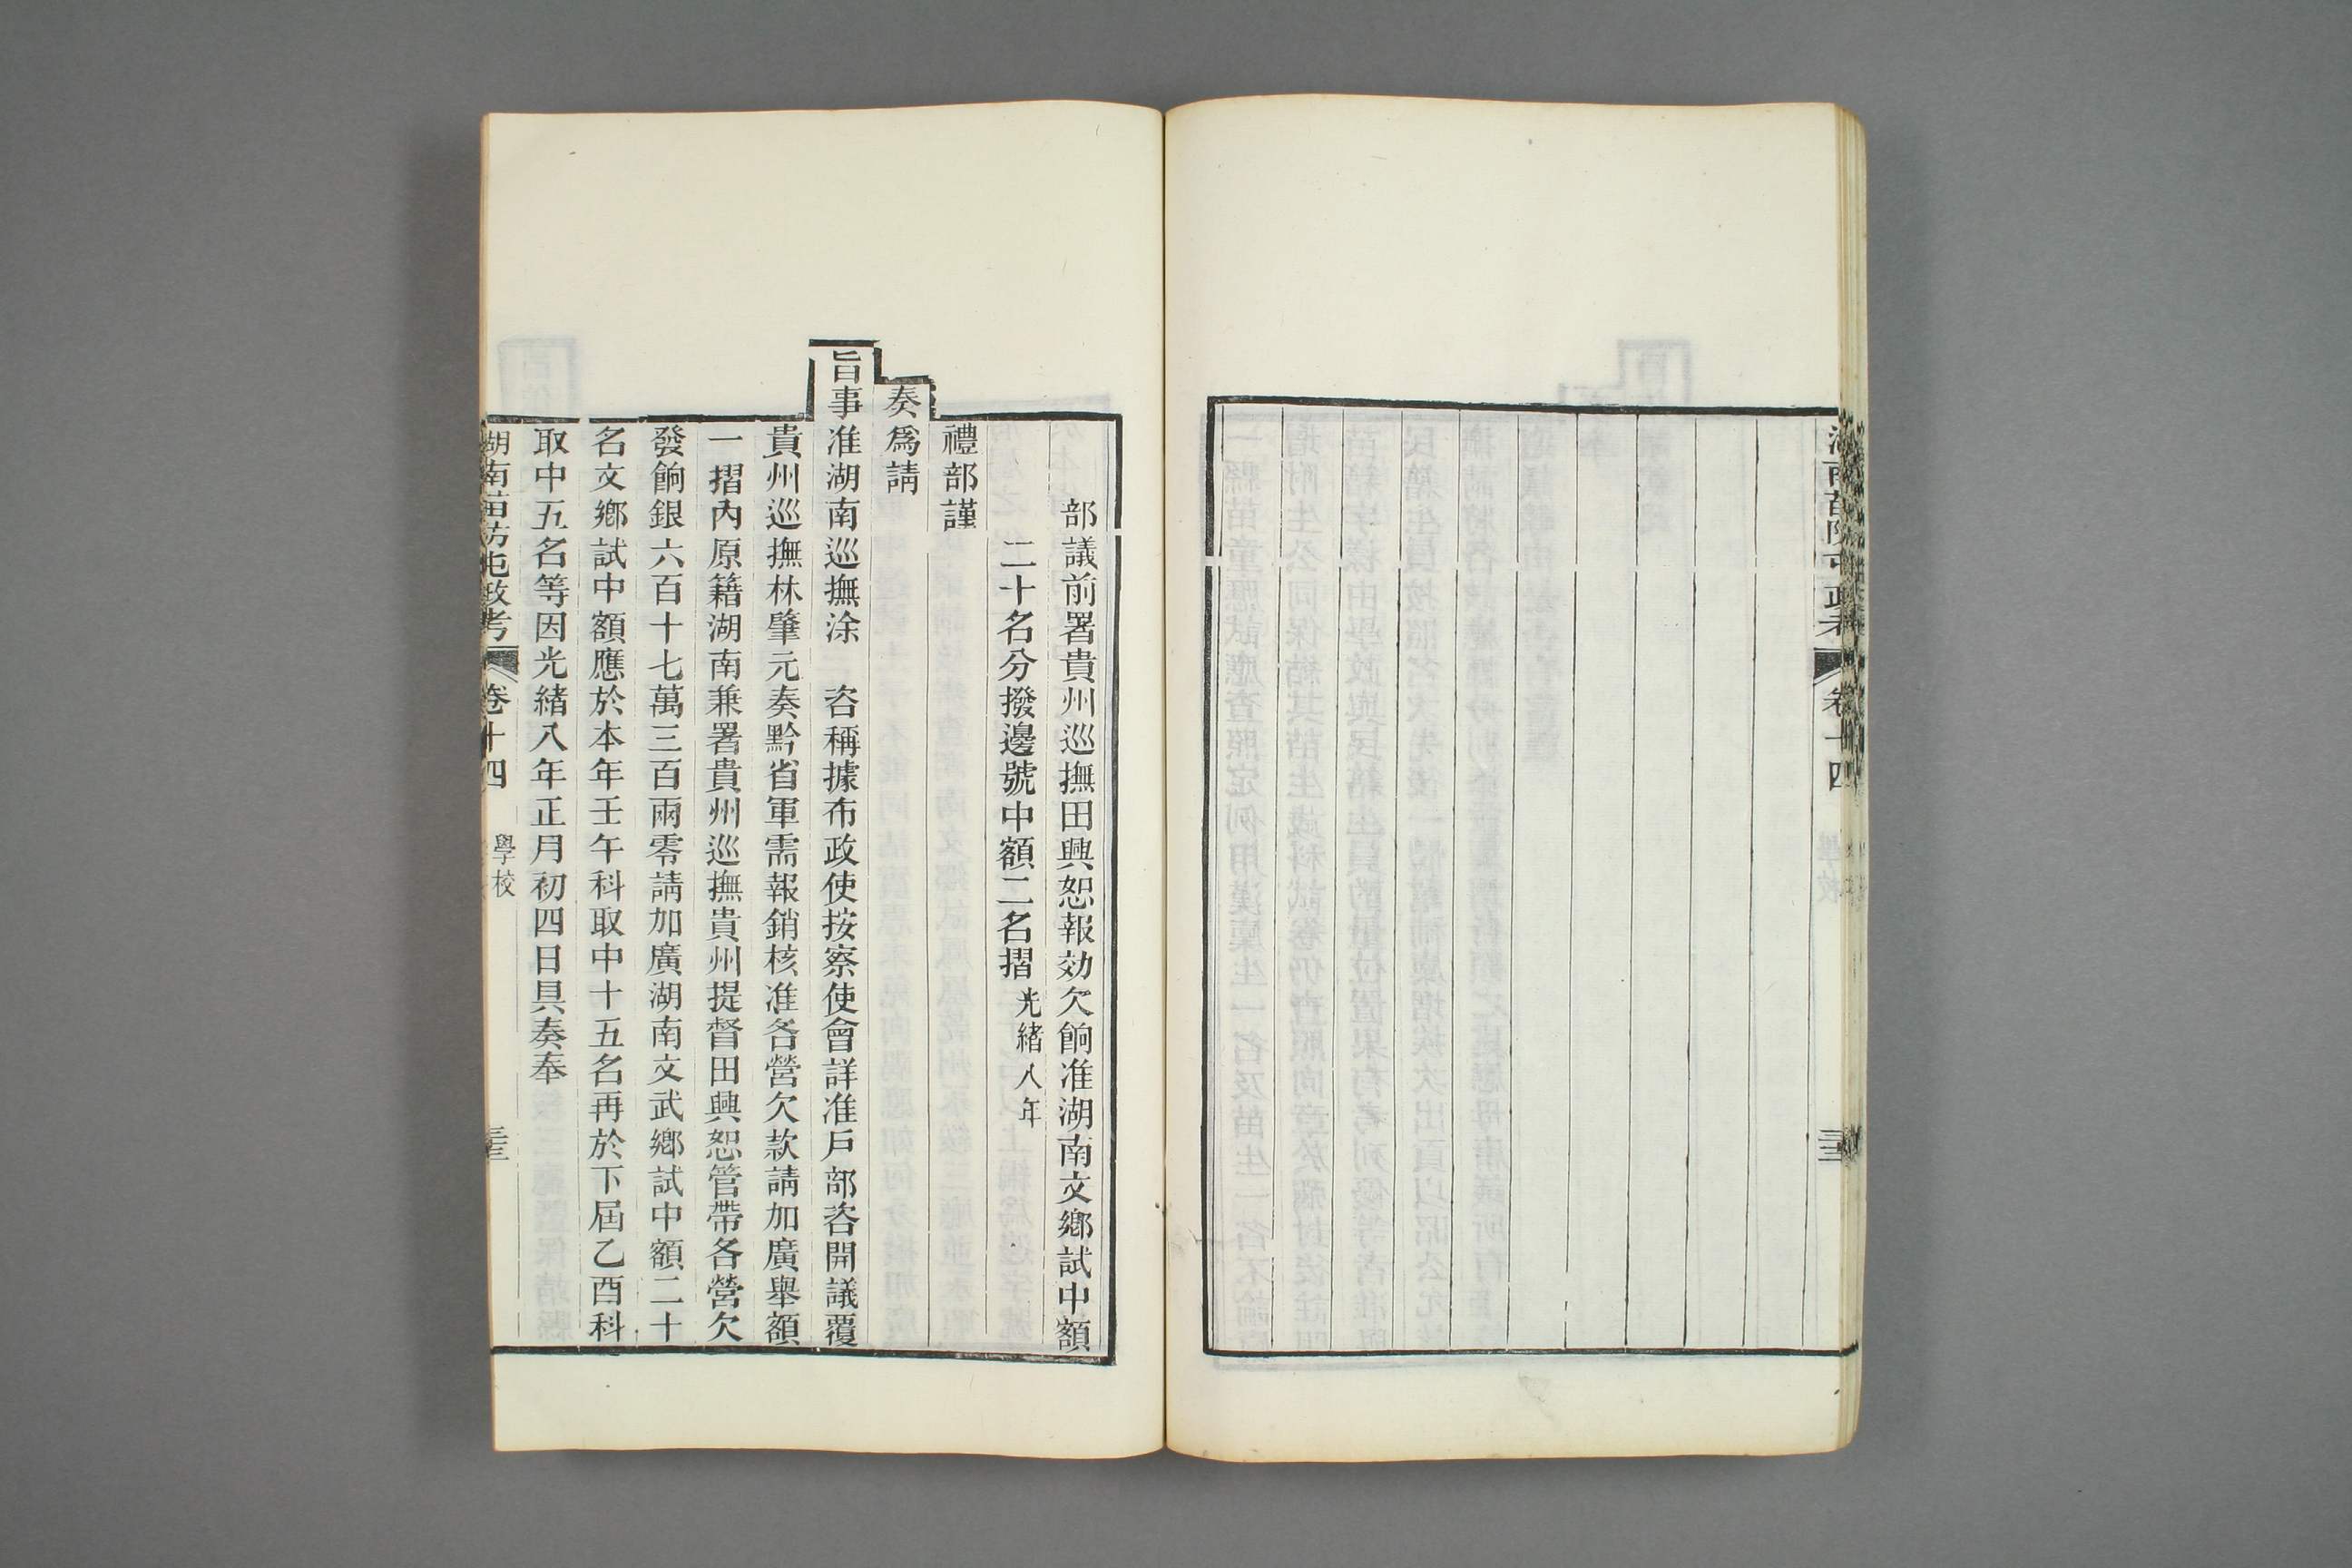 湖南苗防屯政考
卷十四
部議前署貴州巡撫田興恕報効欠餉准湖南文鄉試中額
二十名分撥邊號中額二名摺光緒八年
禮部謹
奏爲請
旨事准湖南巡撫涂 咨稱據布政使按察使會詳准戶部咨開議覆
貴州巡撫林肇元奏黔省軍需報銷核准各營欠款請加廣舉額
一摺內原籍湖南兼署貴州巡撫貴州提督田興恕管帶各營欠
發餉銀六百十七萬三百兩零請加廣湖南文武鄉試中額二十
名文鄉試中額應於本年壬午科取中十五名再於下屆乙酉科
取中五名等因光緒八年正月初四日具奏奉
湖南苗防屯政考 卷十四 學校 三三